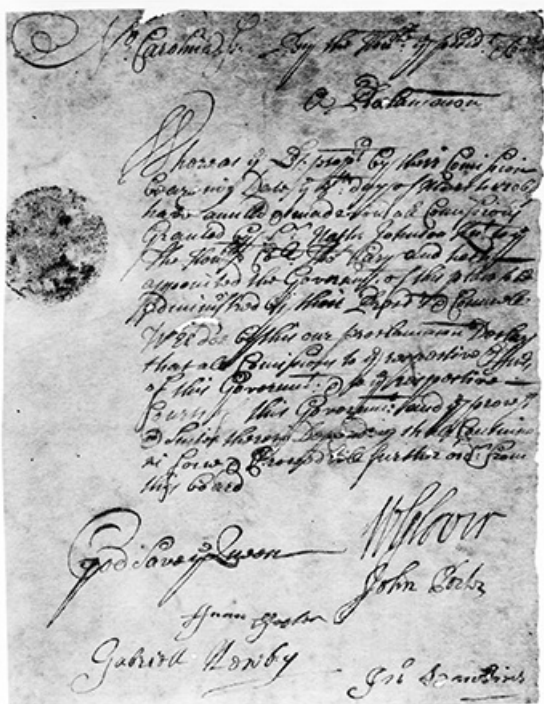 No. Carolina ss. By the Honble ye presidt
A Proclamation
Whereas ye Lds propts by their Comission
bearing Date ye day of March 1706
have anulld & made void all Comissions
Granted by Sr Nathll Johnson Knt to
The Honble Coll Tho Cary and hath
appointed the Governmt of this place to be
Administred by their Deputys & Councell
Wee doe by this our proclamation Declare
that all Comissions to ye respective
of this Governmt & to ye respective
Courts of this Governmt and ye
& Suites therein Depending shall Continue
in force & till further ordr from
this board
God Save ye Queen
W Glover
John Porter
Fran Foster
Gabriell Newby
Jno Hawkins